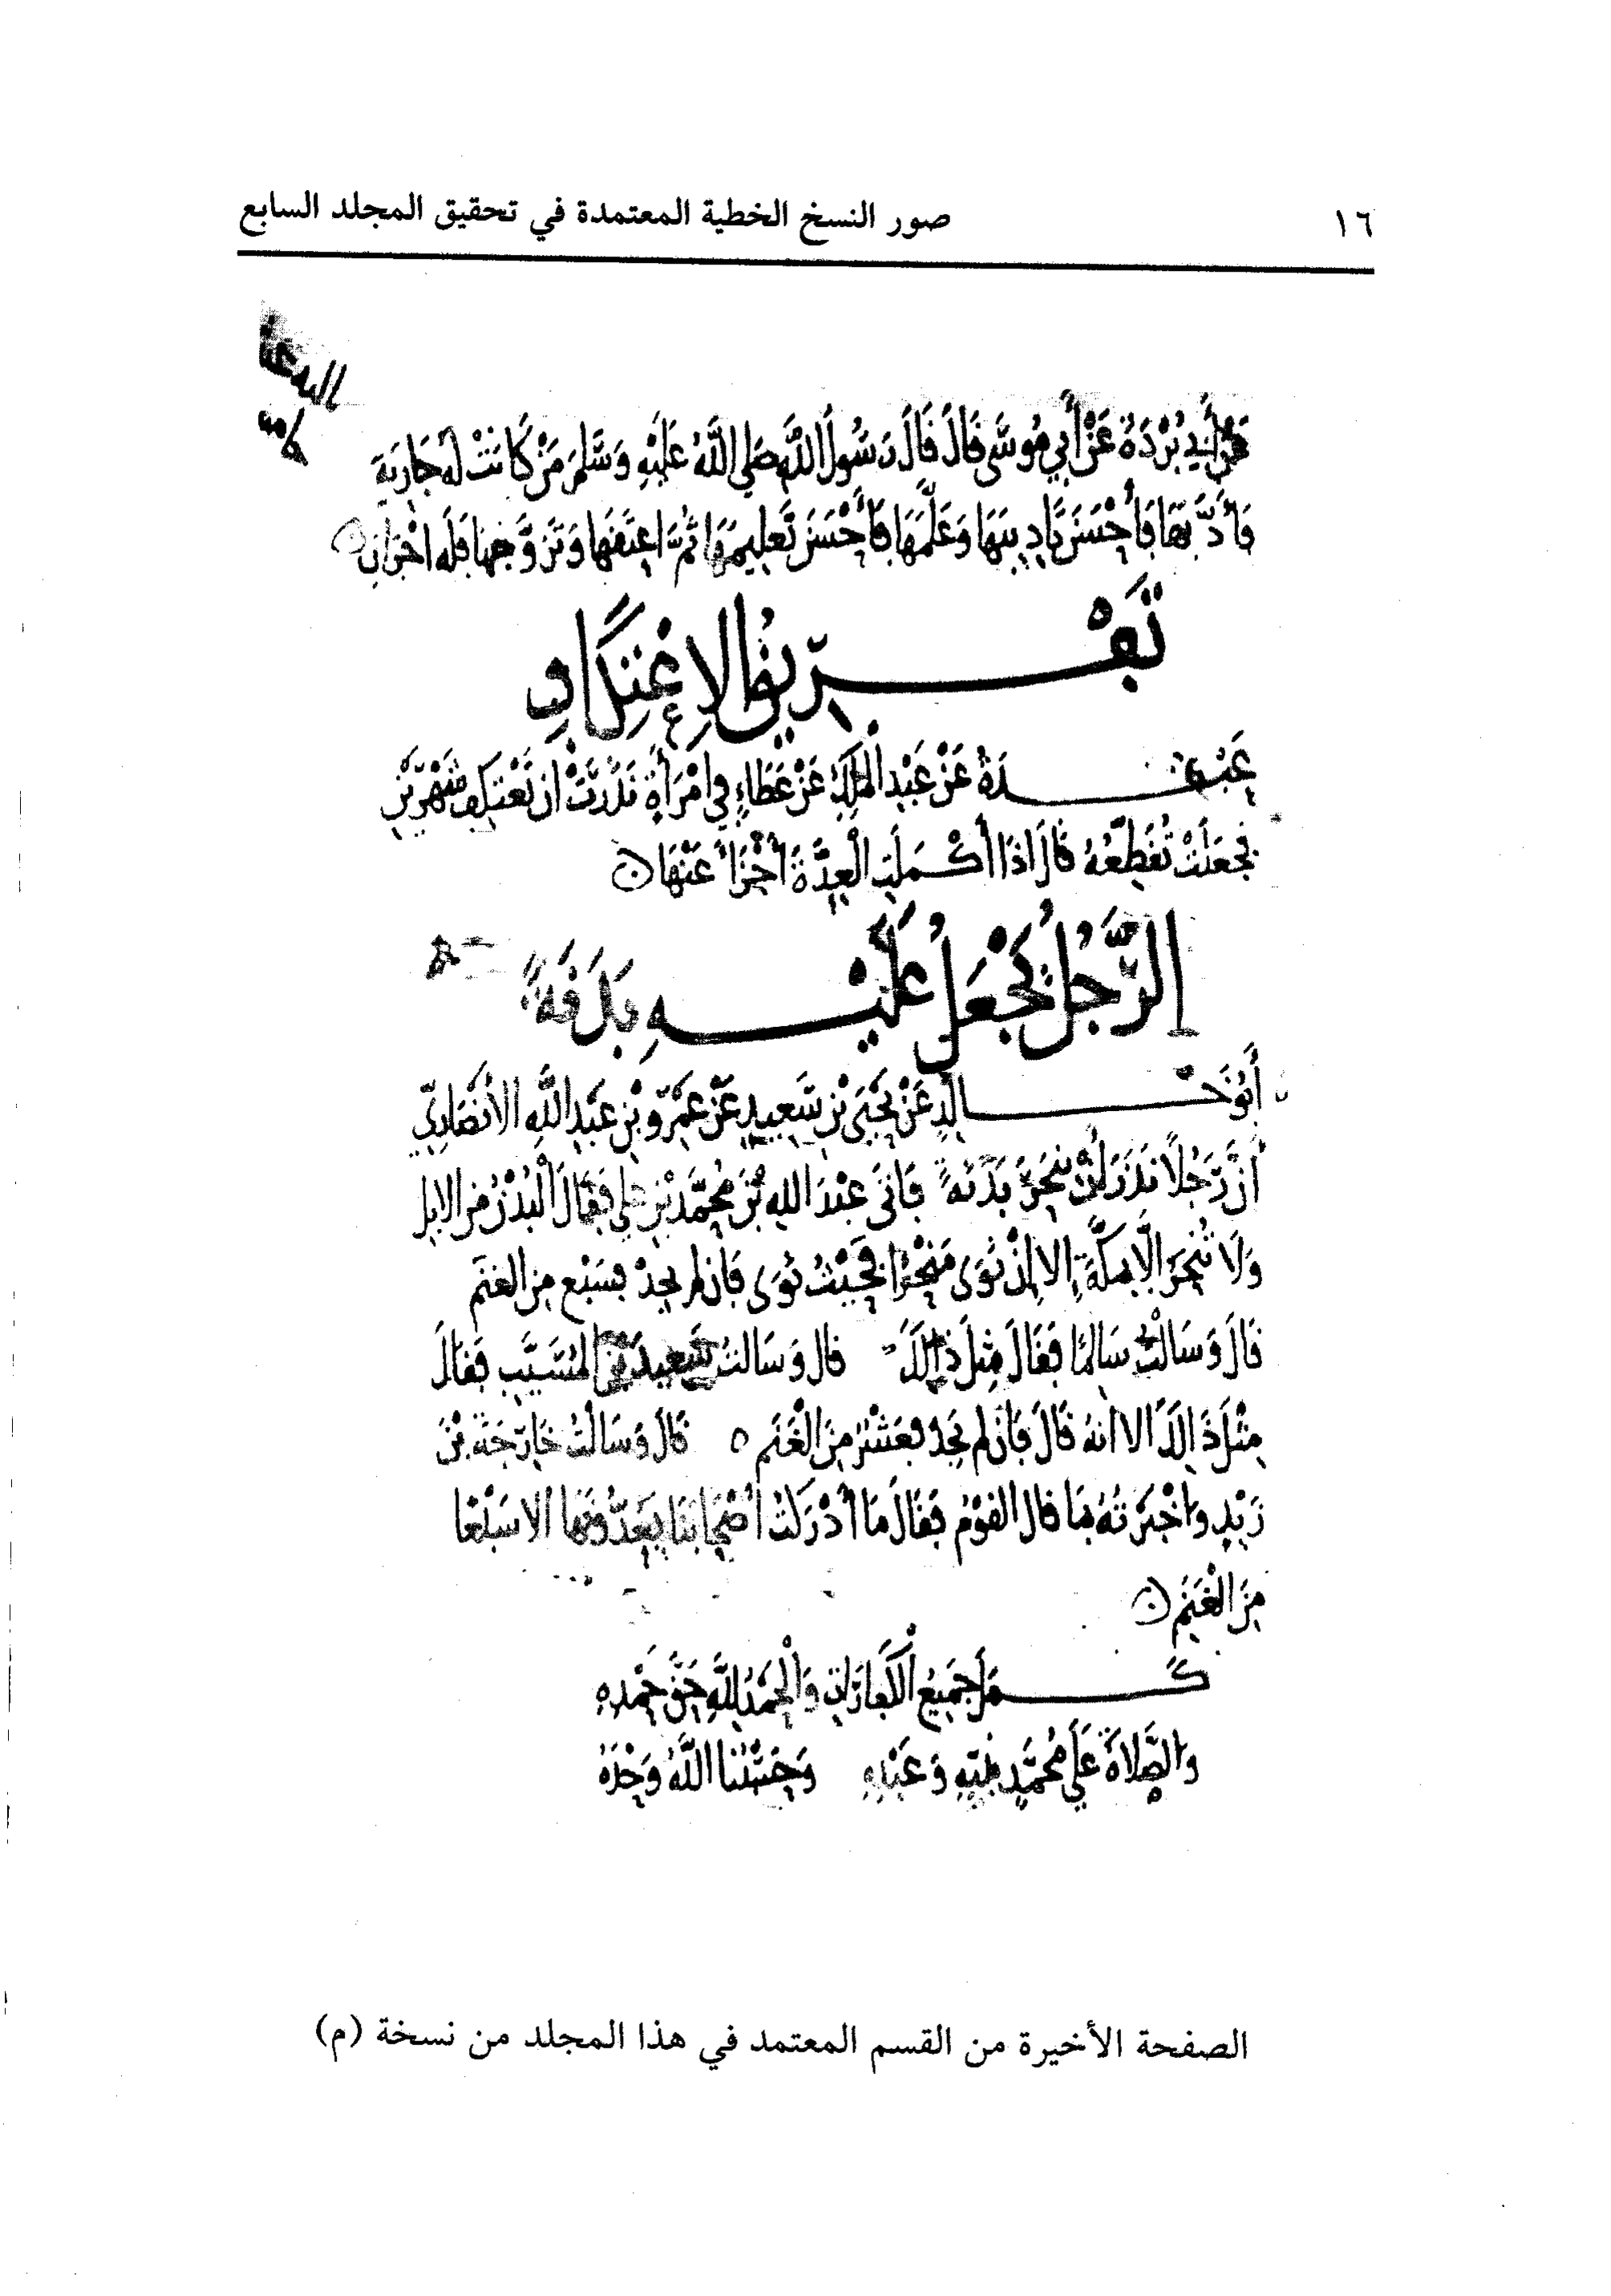 ١٦ صور النسخ الخطية المعتمدة في تحقيق المجلد السابع
عَنْ أَبِي بُرْدَةَ عَنْ أَبِي مُوسَى قَالَ قَالَ رَسُولُ اللَّهِ صَلى اللَّهُ عَلَيْهِ وَسَلَّمَ مَنْ كَانَتْ لَه جَارِيَة
فَأَدَّبَهَا فَأَحْسَنَ تَادِيبَهَا وَعَلَّمَهَا فَأَحْسَنَ تَعلِيمَهَا ثُمَّ اعتَقَهَا وَتَزَوَّجهَا فَلَه اجْرَانِ
تَفْرِيقُ الاِعْتِكَافِ
عَبْدَةُ عَنْ عَبْدِ الْمَلِكِ عَنْ عَطَاءٍ فِي امْرَأَةٍ نَذَرَتْ ان تَعْتَكِفَ شَهْرَيْنِ
فَجَعَلَتْ تُقَطِّعُهُ قَالَ اذَا أَكْمَلَتِ الْعِدَّةَ أَجْزَأَ عَنْهَا
الرَّجُلُ يَجْعَلُ عَلَيْهِ بَدَنَةً
أَبُو خَالِدٍ عَنْ يَحْيَى بْنِ سَعِيدٍ عَنْ عَمْرِو بْنِ عَبْدِ اللَّهِ الأَنْصَارِيِّ
أَنَّ رَجُلاً نَذَرَ أَنْ يَنْحَرَ بَدَنَةً فَاتَى عَبْدَ اللهِ بْنَ مُحَمَّدِ بْنِ عَلي فَقَالَ الْبُدْنُ مِنَ الابِلِ
وَلَا تُنْحَرُ الَّا بِمَكَّةَ إِلا إِنْ نَوَى مَنْحَرًا فَحَيْثُ نَوَى فَإِن لم يَجِدْ فَسَبْع مِنَ الغَنَمِ
قَالَ وَسَالْتُ سَالِمًا فَقَالَ مِثْلَ ذَالِكَ قال وَسَالتُ سَعِيدَ بْنَ الْمُسَيَّبِ فَقَالَ
مِثْلَ ذَالِكَ الا انهُ قَالَ فَإن لم تَجِدْ فَعَشْرٌ مِنَ الْغَنَمِ ٥ قَالَ وَسَالْتُ خَارِجَةَ بْنَ
زَيْدٍ وَاخْبَرْتُهُ بِمَا قال القَوْمُ فَقَالَ مَا أَدْرَكْتُ أَصْحَابَنَا يَعُدُّونَهَا الا سَبْعًا
مِنَ الْغَنَمِ
كَمَلَ جَمِيعُ الْكَفَارَاتِ وَالْحَمْدُ لِلَّهِ حَقَّ حَمْدِهِ
وَالصَّلاةُ عَلَى مُحَمَّدٍ نَبِيِّهِ وَعَبْدِهِ وَحَسْبُنَا اللَّهُ وَحْدَهُ
الصفحة الأخيرة من القسم المعتمد في هذا المجلد من نسخة (م)